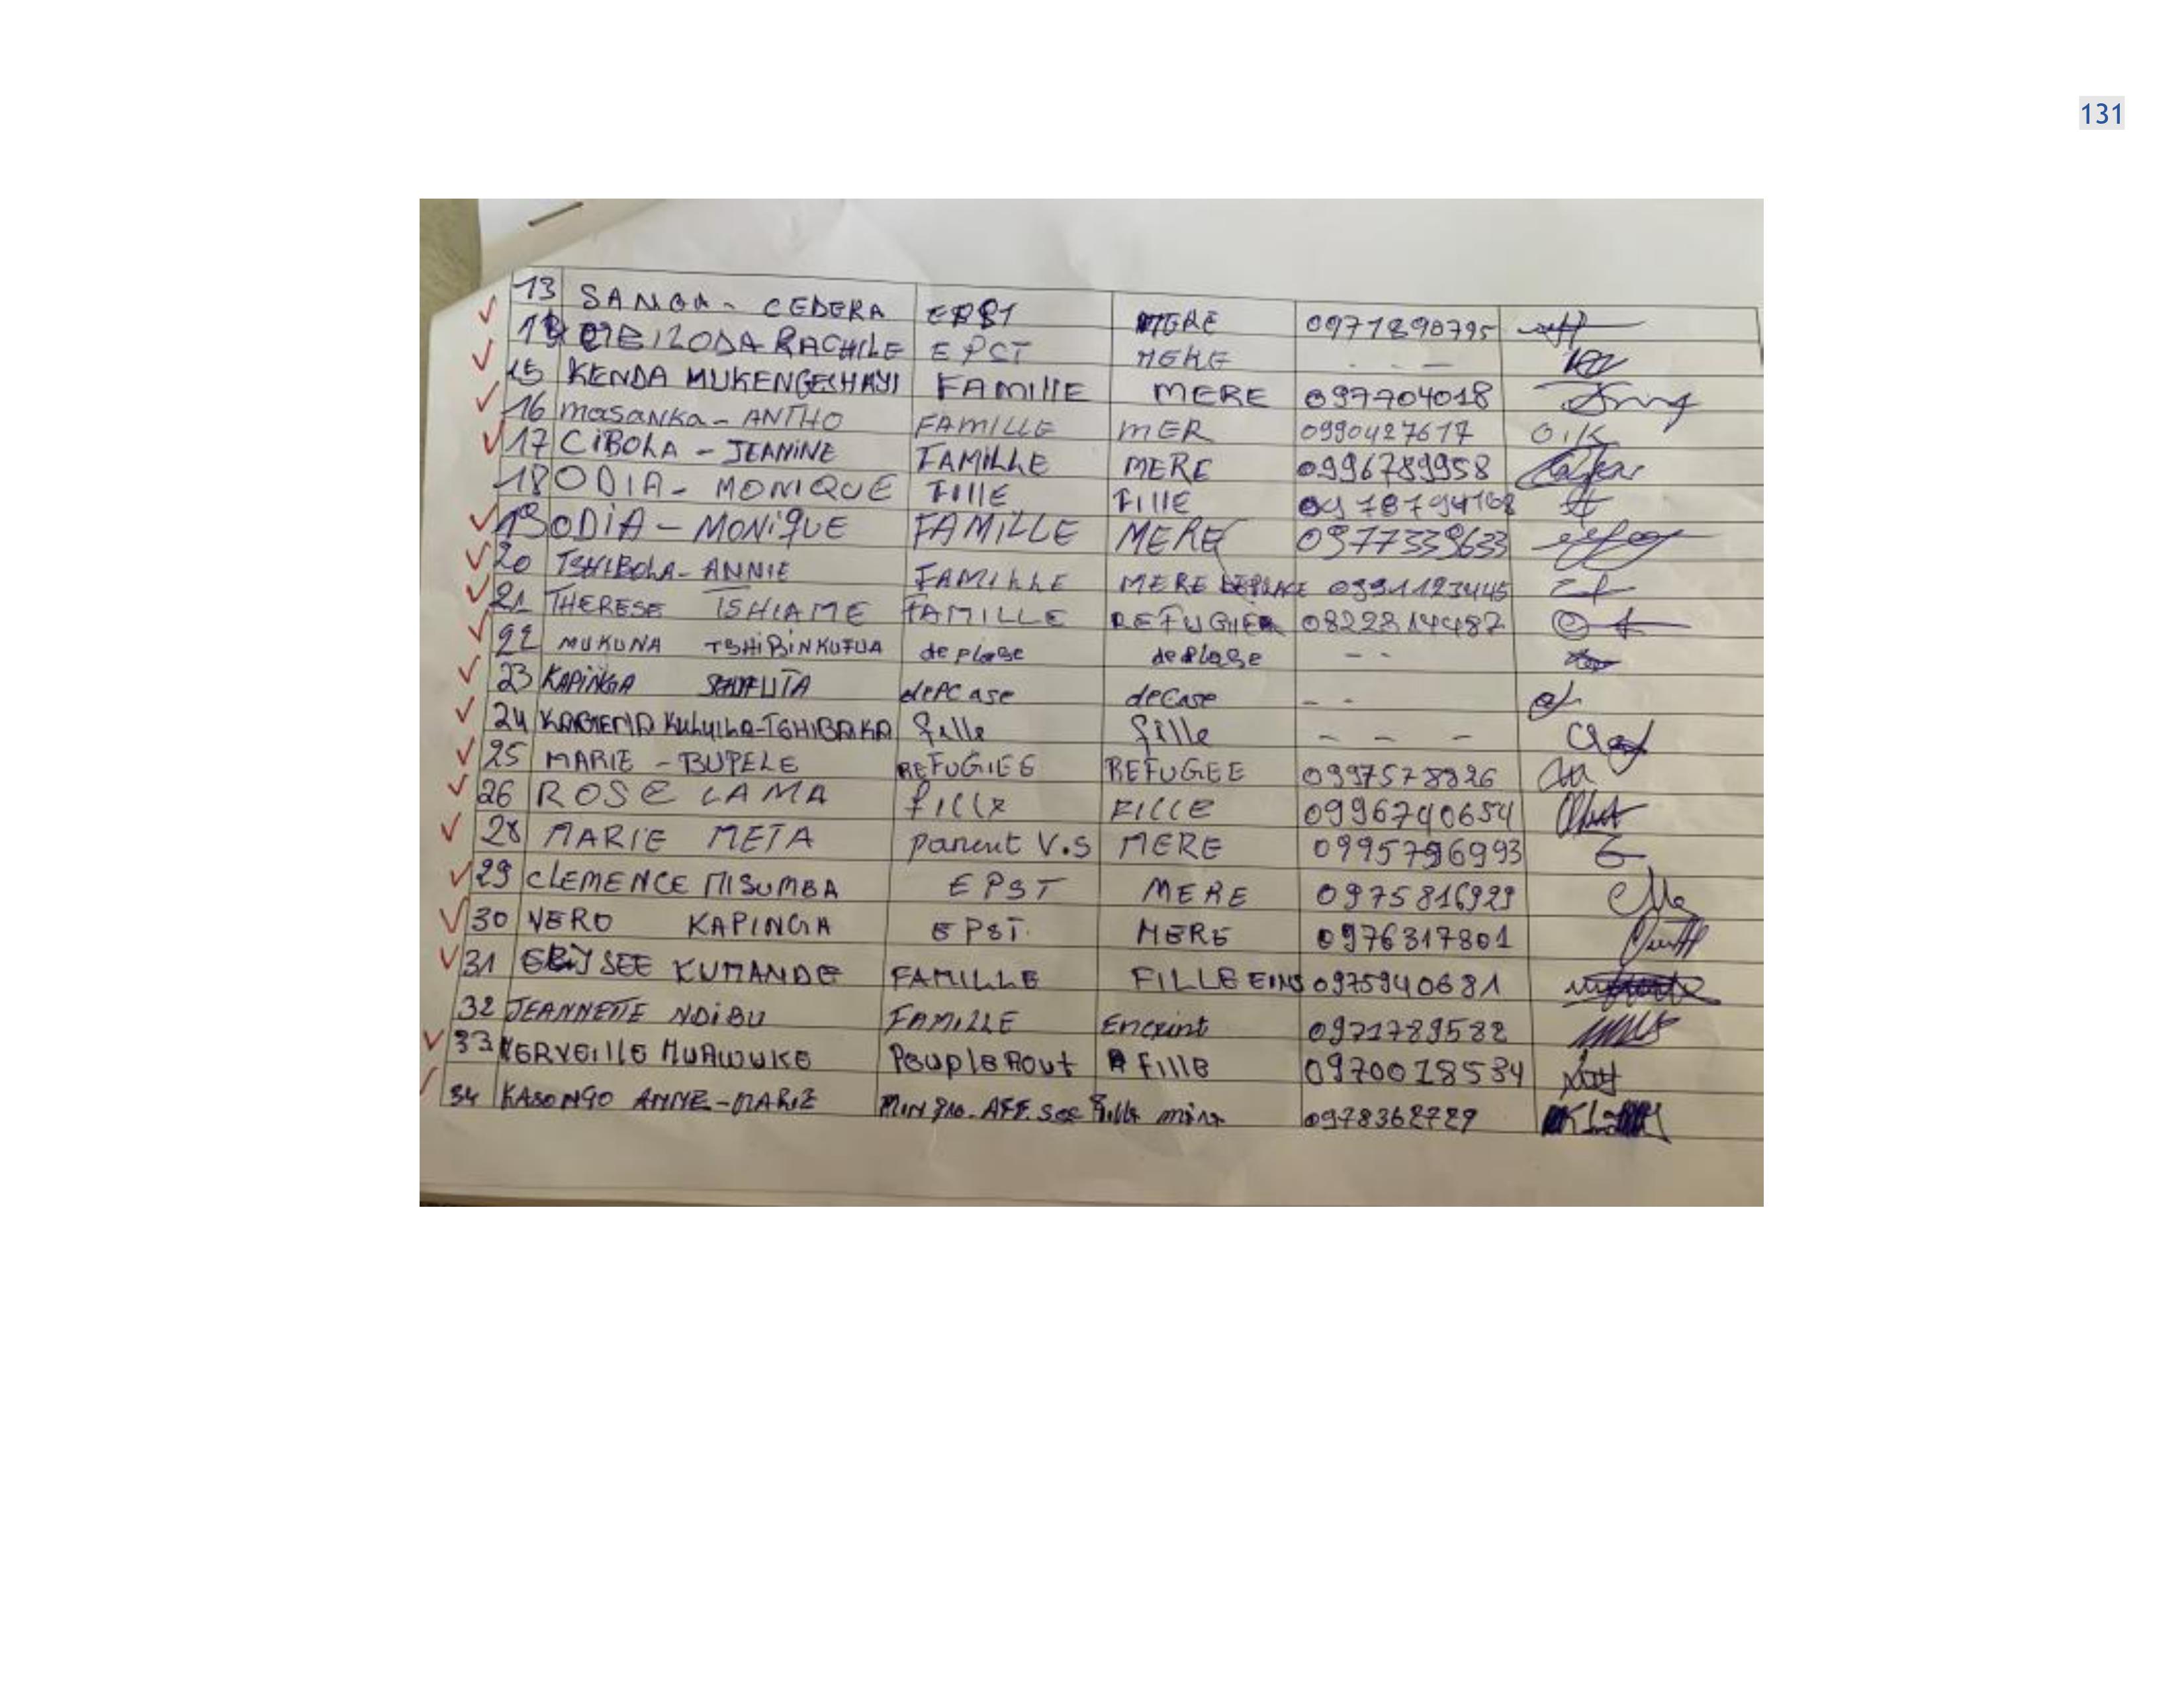 131
13 SANGA - CEDERA EPST MERE 0971890795
RACHILE EPCT MERE - - -
15 KENDA MUKENGESHAYI FAMIllE MERE 097704018
16 masanka - ANTHO FAMILLE MER 0990427617 OiK
17 CiBOLA - JEANiNE FAMILLE MERE 0996789958
18 ODIA - MONIQUE FIllE FIllE
19 ODiA - MONiQUE FAMILLE MERE 0977339633
20 TSHIBOLA - ANNIE FAMILLE MERE DEPLACE 09911123445
21 THERESE TSHIAME FAMILLE REFUGIER 0822814487
22 MUKUNA TSHiBiNKUFUA deplase deplase - -
23 KAPiNGA dePCase deCase - -
24 KABIENA KULUILA-TSHIBAKA fille fille - - -
25 MARIE - BUPELE REFUGIEE REFUGEE 0997578826
26 ROSE LAMA fille FILLE 0996740654
28 MARIE META parent V.S MERE 0995796993
29 CLEMENCE MISUMBA EPST MERE 0975816929
30 VERO KAPINGA EPST. MERE 0976317801
31 KUMANDE FAMILLE FILLE EINS 0975940681
32 JEANNETTE NDiBU FAMILLE Enceint 0971789582
33 MERVEILLE MUAWUKE PEUPLE AOUT FIllE 0970018534
34 KASONGO ANNE-MARIE Min pro. AFF. Soc fille mère 0978362729